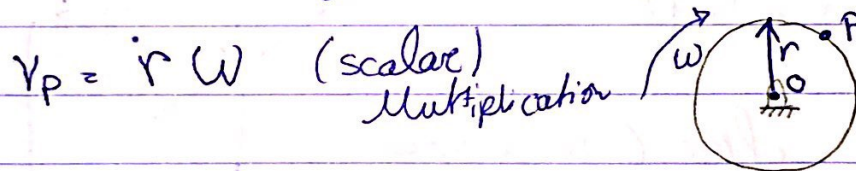 Vp = ṙ ω (scalar)
Multiplication
ω
r
P
O